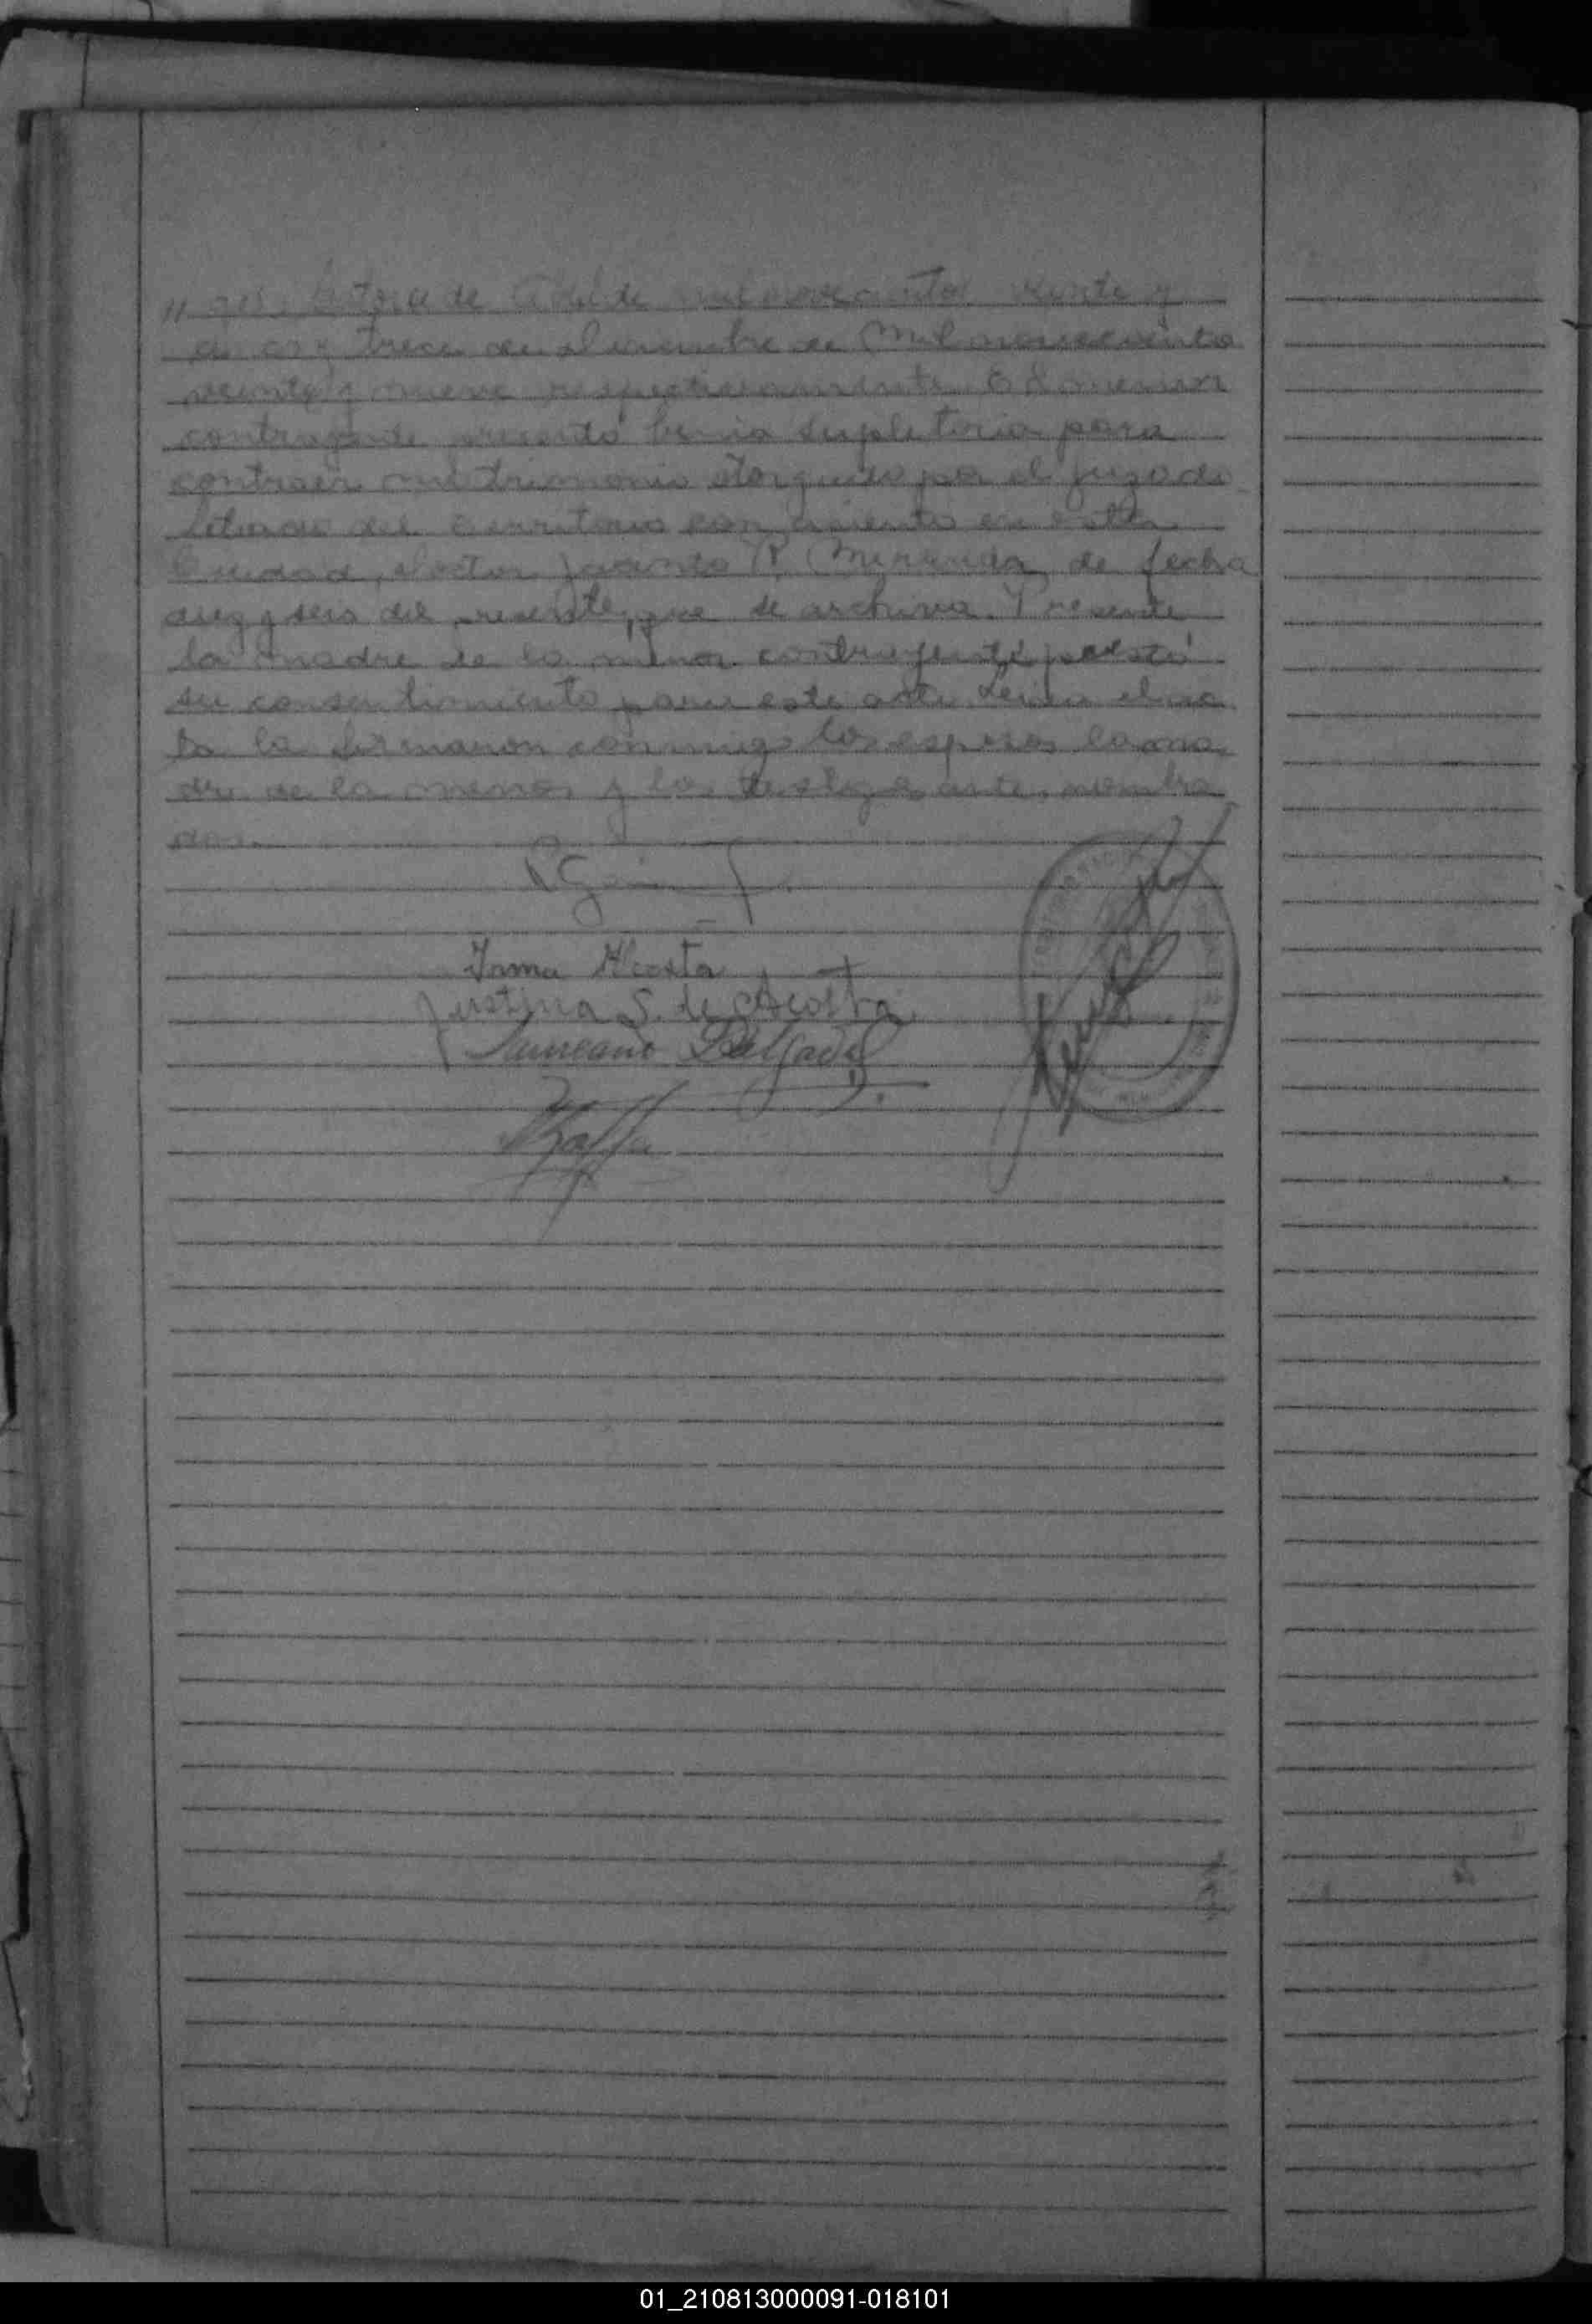 catorce de Abril de mil novecientos veinte y
dos y trece de diciembre de mil novecientos
veinte y nueve respectivamente. El menor
contrayente presentó venia supletoria para
contraer matrimonio otorgada por el juzgado
Letrado del Territorio con asiento en esta
Ciudad, doctor Jacinto R. Miranda, de fecha
diez y seis del presente, que se archiva. Presente
la madre de la menor contrayente prestó
su consentimiento para este acto. Leida el ac
ta la firmaron conmigo los esposos la ma
dre de la menor y los testigos ante nombra
dos.
Irma Acosta
Justina S. de Acosta
Laureano Delgado
01_210813000091-018101